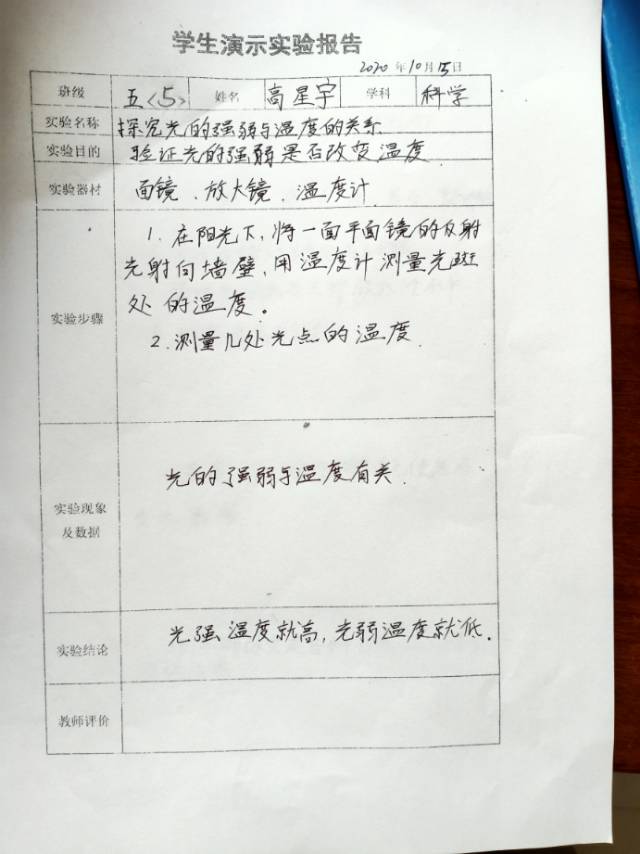 学生演示实验报告
2020年10月15日
班级 五<5> 姓名 高星宇 学科 科学
实验名称 探究光的强弱与温度的关系
实验目的 验证光的强弱是否改变温度
实验器材 面镜、放大镜、温度计
实验步骤
1. 在阳光下,将一面平面镜的反射
光射向墙壁,用温度计测量光斑
处的温度。
2. 测量几处光点的温度.
实验现象
及数据
光的强弱与温度有关.
实验结论 光强温度就高,光弱温度就低.
教师评价